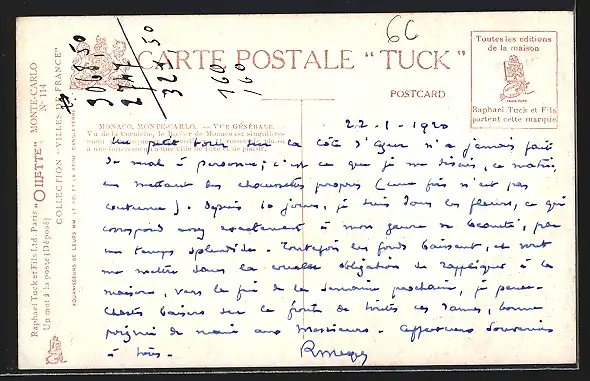 6C
3068,50
2741
327,50
160
160
CARTE POSTALE "TUCK"
POSTCARD
Toutes les éditions
de la maison
Raphael Tuck et Fils
portent cette marque
Raphael Tuck et Fils Ltd. Paris "OILETTE" MONTE-CARLO
Un mot à la poste (Déposé) Nº 114
COLLECTION "VILLES DE FRANCE"
FOURNISSEURS DE LEURS MM LE ROI ET LA REINE D'ANGLETERRE
MONACO, MONTE-CARLO. — VUE GÉNÉRALE.
Vu de la Corniche, le Rocher de Monaco est singulière-
22-1-1920
Un petit tour sur la Côte d'Azur n'a jamais fait
de mal à personne; c'est ce que je me disais, ce matin,
en mettant des chaussettes propres (une fois n'est pas
coutume). Depuis 10 jours, je suis dans les fleurs, ce qui
correspond exactement à mon genre de beauté, par
un temps splendide. Toutefois les fonds baissent, et vont
me mettre dans la cruelle obligation de rappliquer à la
maison, vers la fin de la semaine prochaine, je pense.
Chastes baisers sur le front de toutes ces dames, bonne
poignée de main aux Messieurs. Affectueux Souvenirs
à tous.